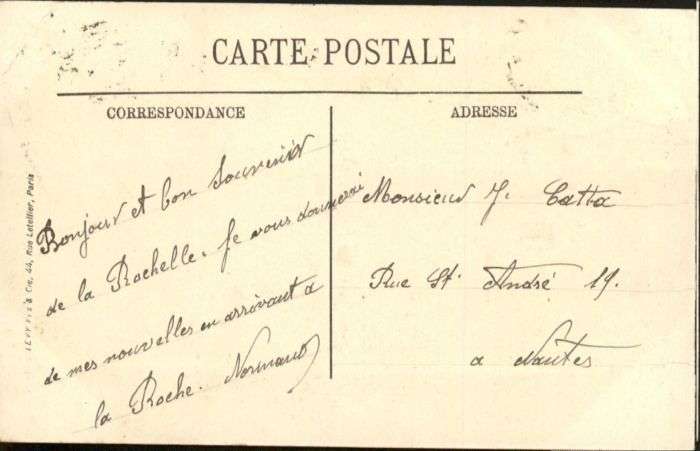 CARTE POSTALE
CORRESPONDANCE
ADRESSE
Bonjour et bon Souvenir
de la Rochelle. Je vous donnerai
de mes nouvelles en arrivant a
la Roche. Normand
Monsieur J. Catta
Rue St André 19.
a Nantes
44, Rue Letellier, Paris